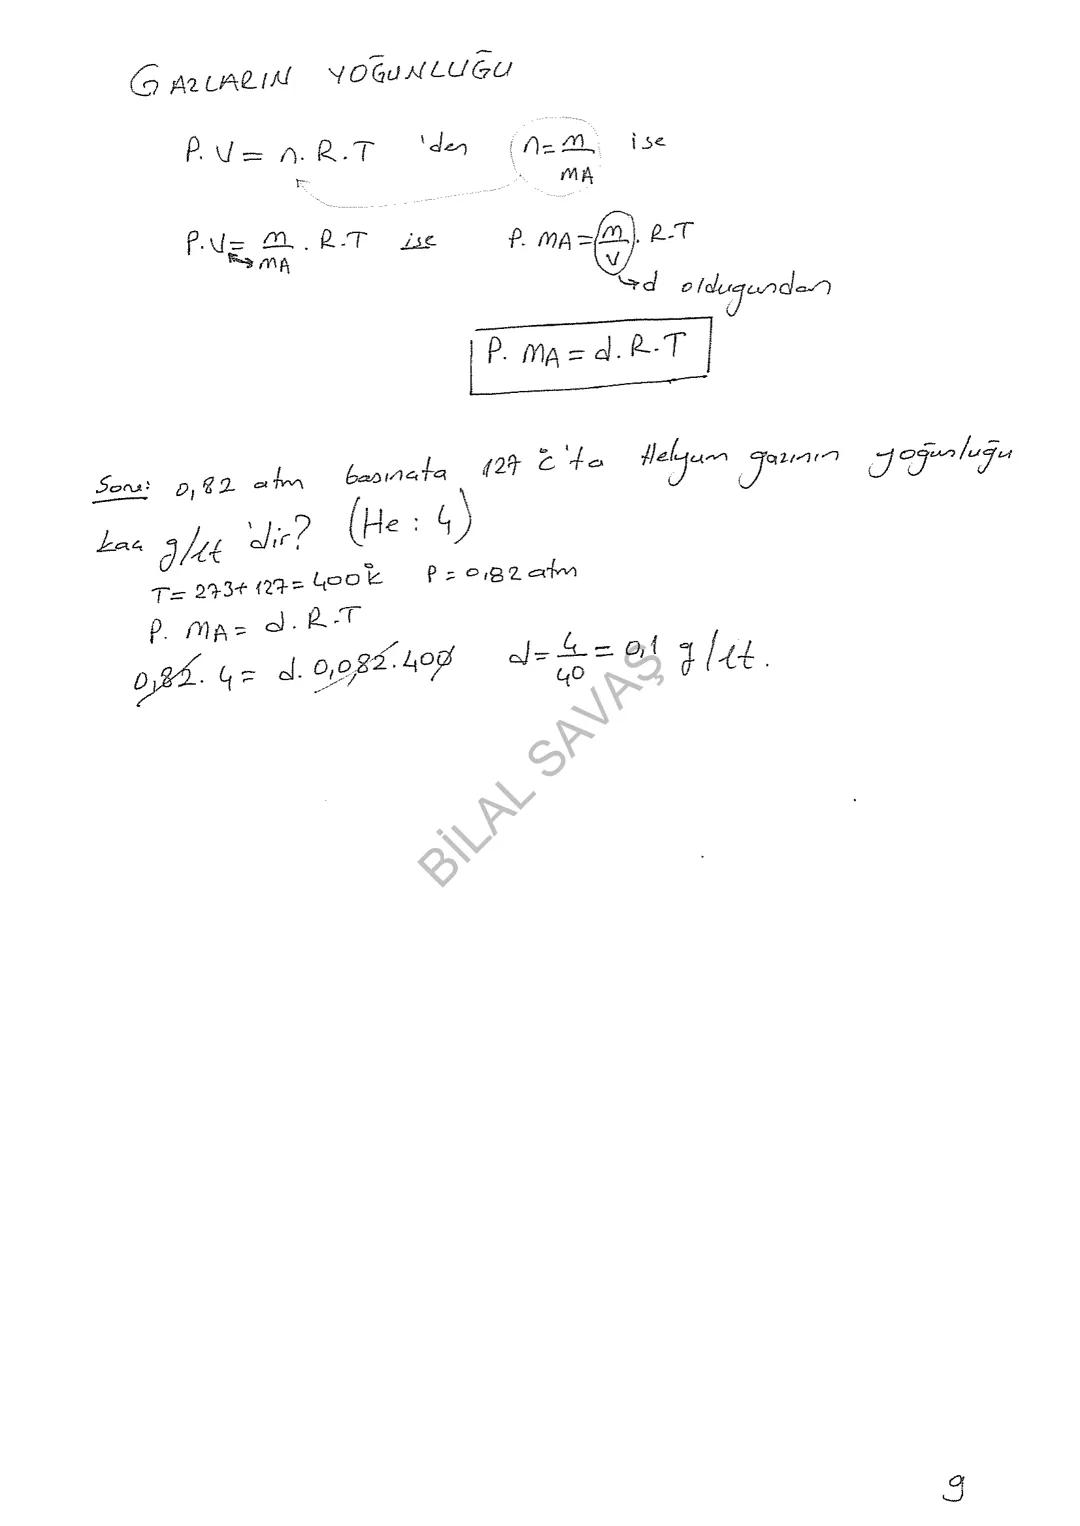 GAZLARIN YOĞUNLUĞU
P. V = n. R. T 'den n = m/MA ise
P. V = m/MA . R. T ise P. MA = m/V . R. T
d olduğundan
P. MA = d. R. T
Soru: 0,82 atm basınçta 127 °C'ta Helyum gazının yoğunluğu
kaç g/lt 'dir? (He : 4)
T = 273 + 127 = 400 °K P = 0,82 atm
P. MA = d. R. T
0,82. 4 = d. 0,082. 400 d = 4/40 = 0,1 g/lt.
BİLAL SAVAŞ
9